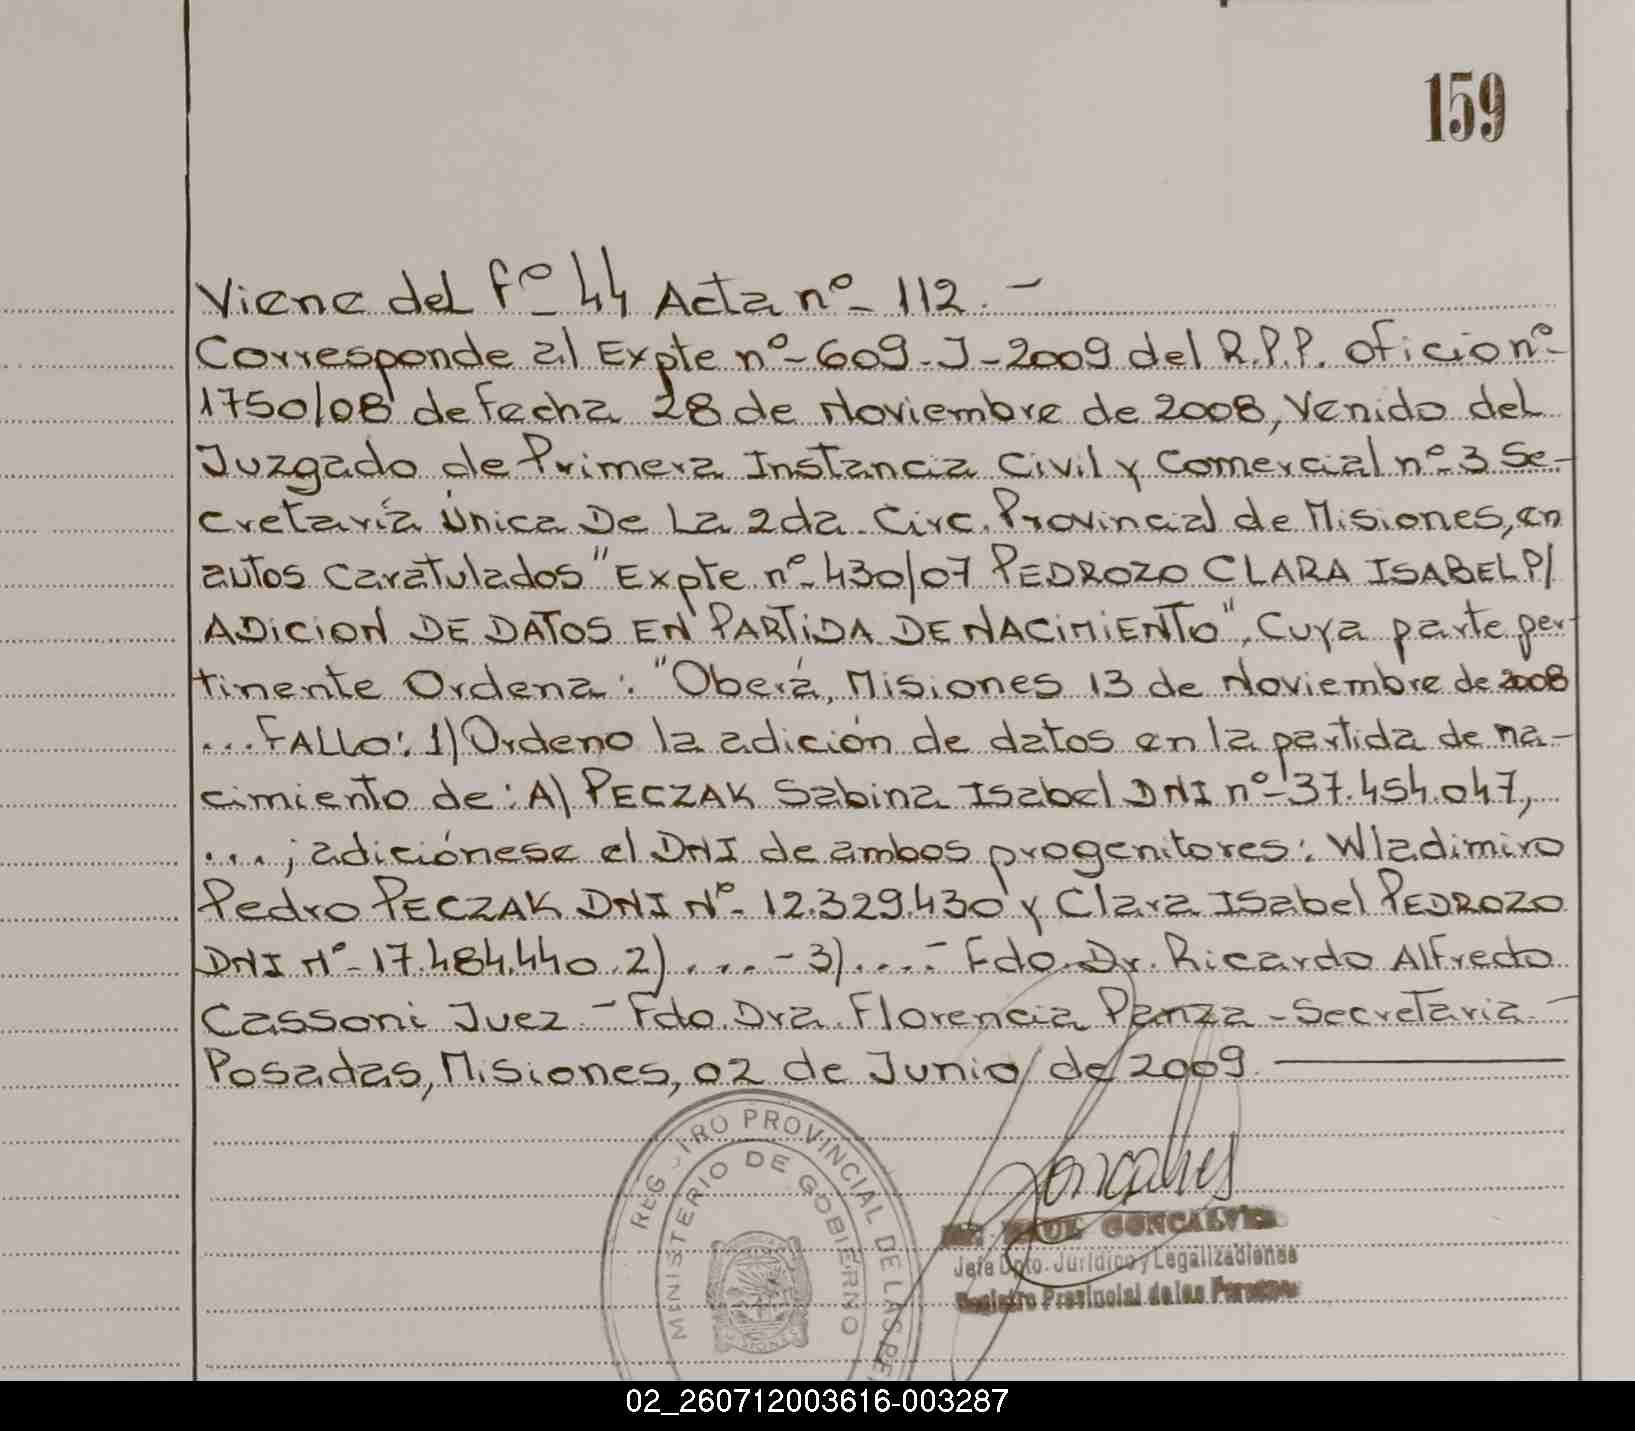 159
Viene del fº 44 Acta nº 112. -
Corresponde al Expte nº-609-J-2009 del R.P.P. oficio nº-
1750/08 de fecha 28 de Noviembre de 2008, Venido del
Juzgado de Primera Instancia Civil y Comercial nº 3 Se-
cretaría Única De La 2da. Circ. Provincial de Misiones, en
autos caratulados "Expte nº-430/07 PEDROZO CLARA ISABEL P/
ADICION DE DATOS EN PARTIDA DE NACIMIENTO", Cuya parte per-
tinente Ordena: "Oberá, Misiones 13 de Noviembre de 2008
...FALLO: 1) Ordeno la adición de datos en la partida de na-
cimiento de: A) PECZAK Sabina Isabel DNI nº-37.454.047,
...; adiciónese el DNI de ambos progenitores: Wladimiro
Pedro PECZAK DNI Nº- 12.329.430 y Clara Isabel PEDROZO
DNI Nº-17.484.440. 2) .... - 3) .... - Fdo. Dr. Ricardo Alfredo
Cassoni Juez - Fdo. Dra. Florencia Panza - Secretaria -
Posadas, Misiones, 02 de Junio de 2009.
REGISTRO PROVINCIAL DE LAS PE
MINISTERIO DE GOBIERNO
Goncalves
RAUL GONCALVES
Jefe Dpto. Jurídico y Legalizaciones
Registro Provincial de las Personas
02_260712003616-003287